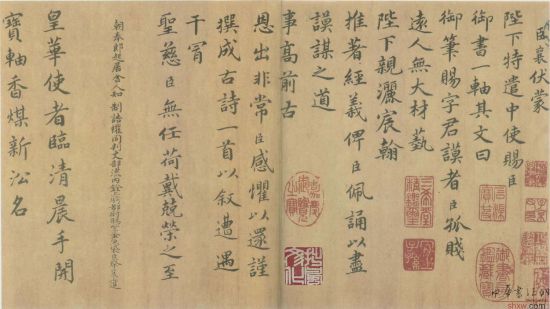 臣襄伏蒙
陛下特遣中使賜臣
御書一軸其文曰
御筆賜字君謨者臣孤賤
遠人無大材藝
陛下親灑宸翰
推著經義俾臣佩誦以盡
謨謀之道
事高前古
恩出非常臣感懼以還謹
撰成古詩一首以敘遭遇
干冒
聖慈臣無任荷戴兢榮之至
朝奉郎起居舍人知 制誥權同判吏部流內銓
皇華使者臨清晨手開
寶軸香煤新㳂名
shxw.com